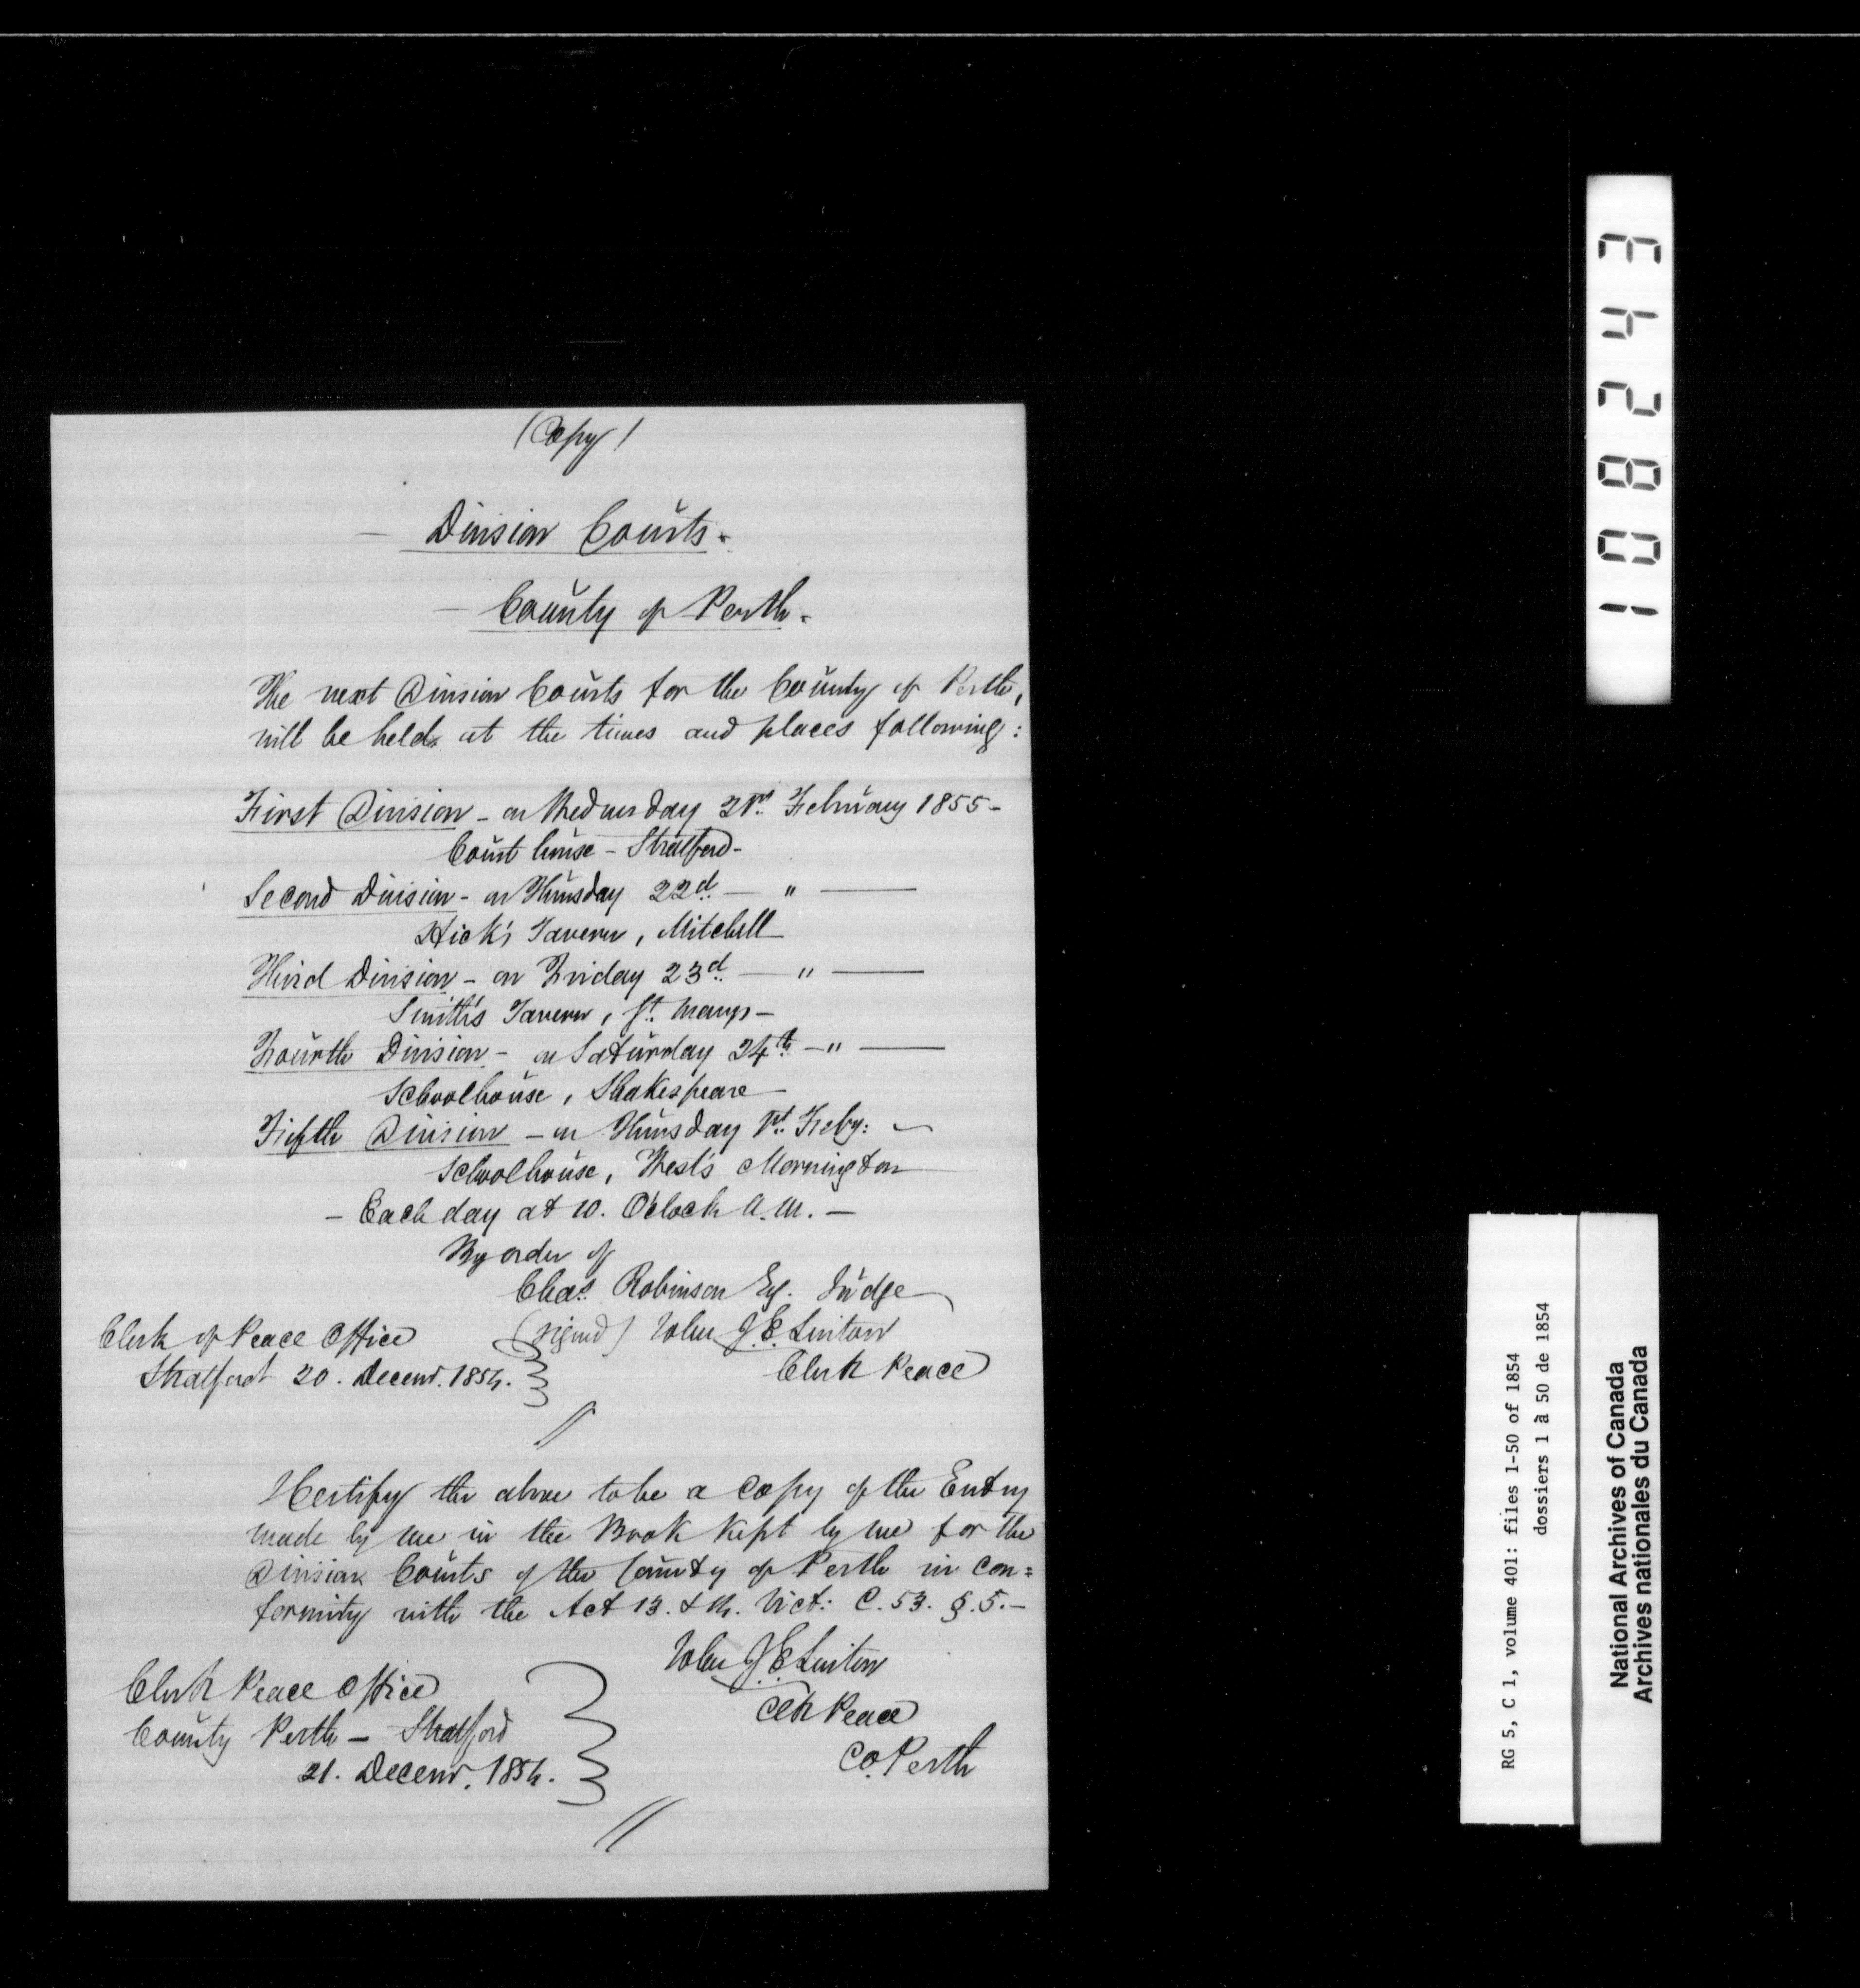 (Copy)
— Division Courts.
— County of Perth.
The next Division Courts for the County of Perth,
will be held at the times and places following:
First Division - on Wednesday 21st. February 1855 -
Court house - Stratford -
Second Division - on Thursday 22d. — " —
Hick's Tavern, Mitchell
Third Division - on Friday 23d. — " —
Smith's Tavern, St. Marys -
Fourth Division - on Saturday 24th. - " —
Schoolhouse, Shakespeare
Fifth Division - on Thursday 1st. Feby:
Schoolhouse, West's Mornington
- Each day at 10. O'clock A.M. -
By order of
Chas. Robinson Esq. Judge
Clerk of Peace Office
Stratford 20. Decemr. 1854.
(signed) John J. E. Linton
Clerk Peace
//
I Certify the above to be a Copy of the Entry
made by me in the Book Kept by me for the
Division Courts of the County of Perth in con=
formity with the Act 13. & 14. Vict: C. 53. §. 5. -
Clerk Peace Office
County Perth - Stratford
21. Decemr. 1854.
John J. E. Linton
Clk Peace
Co. Perth
//
108243
RG 5, C 1, volume 401: files 1-50 of 1854
dossiers 1 à 50 de 1854
National Archives of Canada
Archives nationales du Canada